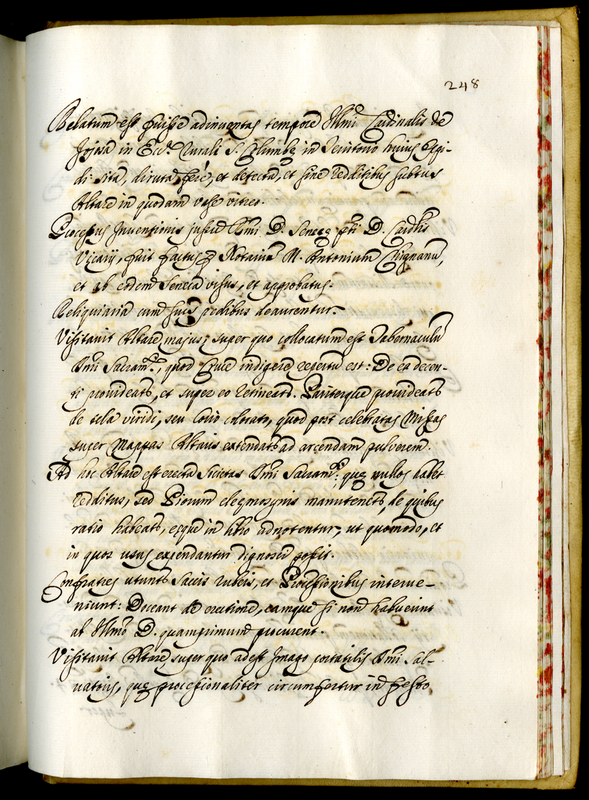 248
Relatum est fuisse adinventas tempore Ill.mi Cardinalis de
Joiosa in Eccl.a Rurali S. in territorio huius Oppi-
di sita, diruta fere, et detecta, et sine redditibus subtus
Altare in quodam vase vitreo.
Processus Inventionis jussu Ill.mi D. Senecæ D. Card.lis
Vicarij, fuit factus Notarium M. Antonium
et ab eodem Seneca visus, et approbatus.
Reliquiaria cum suis pedibus deaurentur.
Visitavit Altare majus, super quo collocatum est Tabernaculũ
S.mi Sacram.ti, quod Cruce indigere repertũ est: De ea decen-
ti provideatr, et super eo retineatr. Pariterque provideatr
de tela viridi, seu corio colorato, quod post celebratas Missas
super Mappas Altaris extendatr ad arcendam pulverem.
Ad hoc Altare est erecta Societas S.mi Sacram.ti quæ nullos habet
redditus, sed Piorum eleemosynis manutenetr, de quibus
ratio habeatr, eæque in libro adnotentur, ut quomodo, et
in quos usus expendantur dignosci possit.
Confratres utuntr Saccis rubeis, et Processionibus interve-
niunt: Doceant de erectione, eamque si non habuerint
ab Ill.mo D. quamprimum procurent.
Visitavit Altare super quo adest Imago portatilis S.mi Sal-
vatoris, quæ processionaliter circumfertur in festo